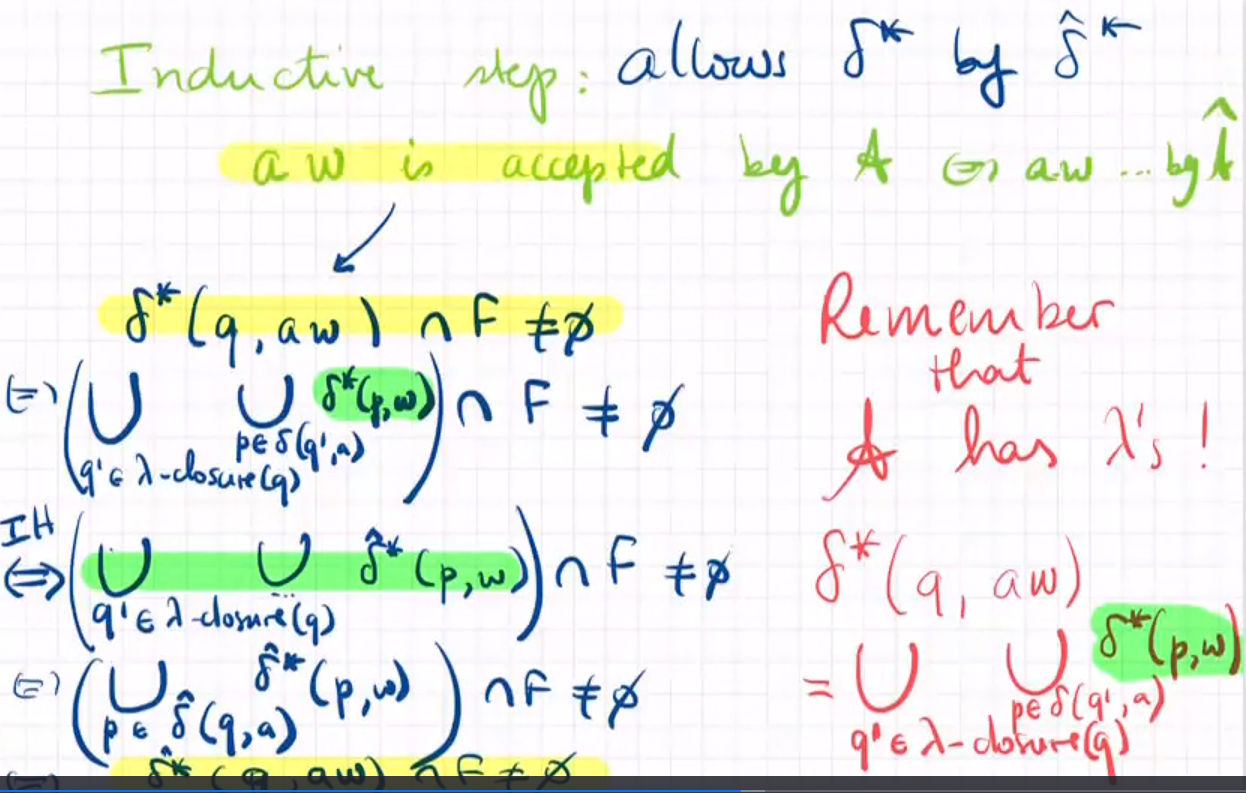 Inductive step: allows δ* by δ̂*
aw is accepted by A ⇔ aw ... by Â
δ*(q, aw) ∩ F ≠ ∅
⇔ (⋃ ⋃ δ*(p,w)) ∩ F ≠ ∅
q' ∈ λ-closure(q) p ∈ δ(q',a)
IH
⇔ (⋃ ⋃ δ̂*(p,w)) ∩ F ≠ ∅
q' ∈ λ-closure(q) ...
⇔ (⋃ δ̂*(p,w)) ∩ F ≠ ∅
p ∈ δ̂(q,a)
⇔ δ̂*(q, aw) ∩ F ≠ ∅
Remember
that
A has λ's !
δ*(q, aw)
= ⋃ ⋃ δ*(p,w)
q' ∈ λ-closure(q) p ∈ δ(q',a)